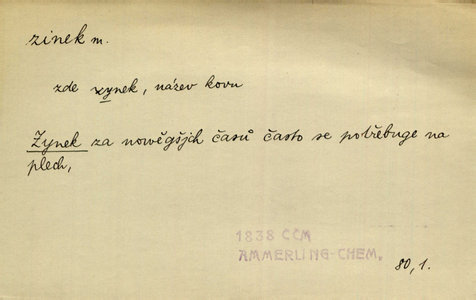 zinek m.
zde zynek, název kovu
Zynek za nowěgšjch časů často se potřebuge na
plech,
1838 CČM
AMMERLING-CHEM.
80, 1.